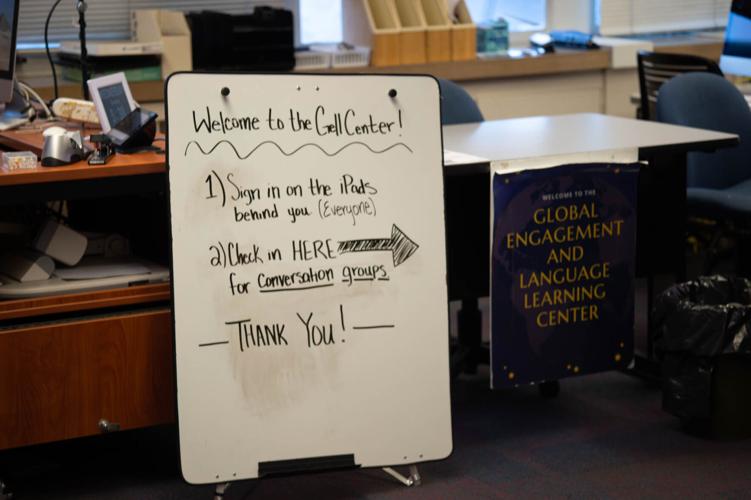 Welcome to the GellCenter!
1) Sign in on the iPads
behind you (Everyone)
2) Check in HERE
for Conversation groups
THANK YOU!
WELCOME TO THE
GLOBAL
ENGAGEMENT
AND
LANGUAGE
LEARNING
CENTER